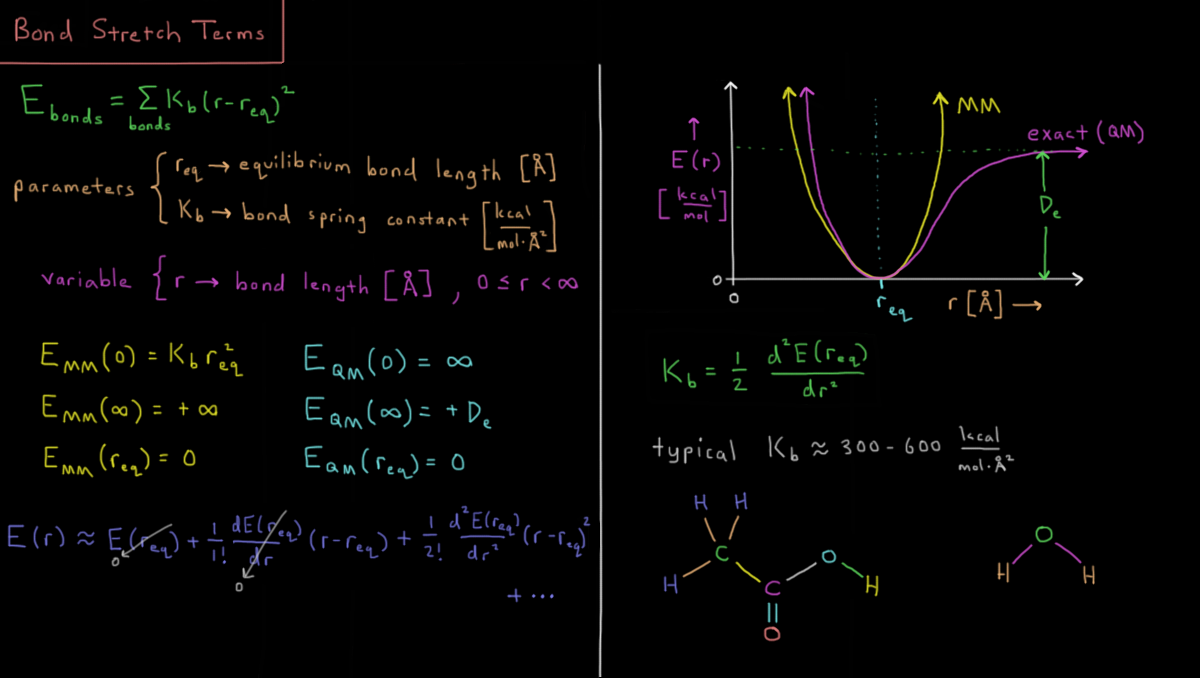 Bond Stretch Terms
E_bonds = Σ_bonds K_b (r - r_eq)^2
parameters { r_eq → equilibrium bond length [Å]
K_b → bond spring constant [kcal/mol·Å^2]
variable { r → bond length [Å] , 0 ≤ r < ∞
E_MM(0) = K_b r_eq^2
E_QM(0) = ∞
E_MM(∞) = +∞
E_QM(∞) = +D_e
E_MM(r_eq) = 0
E_QM(r_eq) = 0
E(r) ≈ E(r_eq) + 1/1! dE(r_eq)/dr (r - r_eq) + 1/2! d^2E(r_eq)/dr^2 (r - r_eq)^2
0
0
+ ...
MM
exact (QM)
↑
E(r)
[kcal/mol]
D_e
0
0
r_eq
r [Å] →
K_b = 1/2 d^2E(r_eq)/dr^2
typical K_b ≈ 300 - 600 kcal/mol·Å^2
H H
C O
H C H
O
O
H H